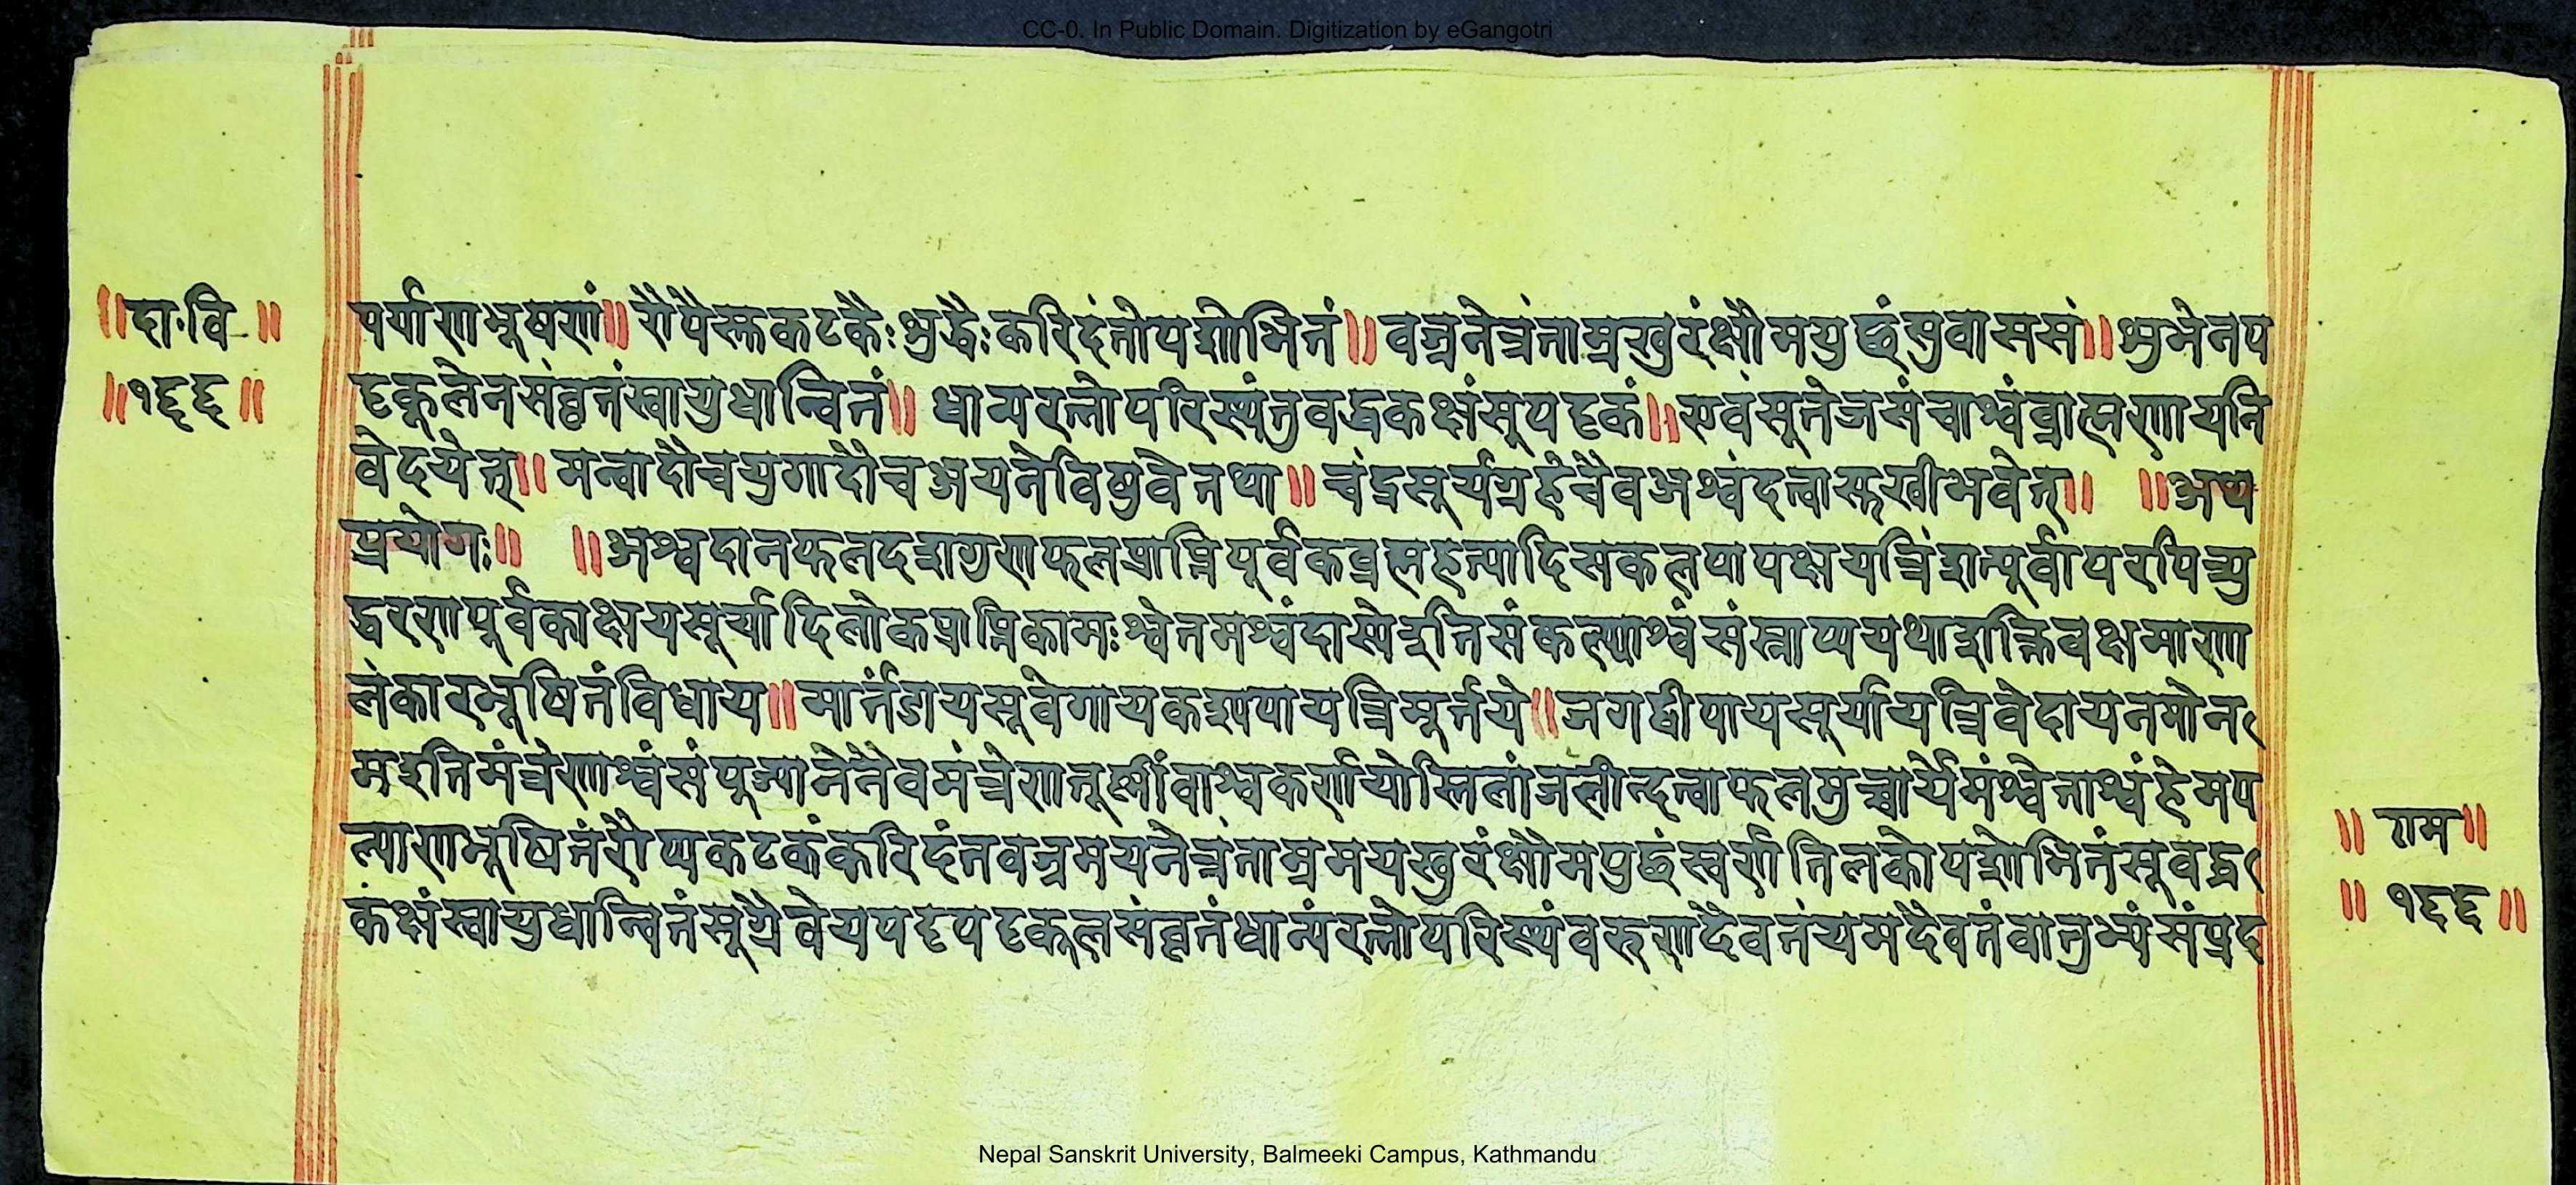 CC-0. In Public Domain. Digitization by eGangotri
॥दा.वि॥
॥१६६॥
पर्याणभूषणं॥ रौप्यैस्तकटकैःशुद्धैःकरिदंतोपशोभितं॥ वज्रनेत्रंताम्रखुरंक्षौमपुछंसुवाससं॥ शुभेनप
ट्टकूलेनसंवृतंस्वायुधान्वितं॥ धान्यरत्नोपरिस्थंतुबद्धकक्षंसुपट्टकं॥ एवंसुतेजसंचाश्वंब्राह्मणायनि
वेदयेत्॥ मन्वादौचयुगादौचअयनेविषुवेतथा॥ चंद्रसूर्यग्रहेचैवअश्वंदत्वासुखीभवेत्॥ ॥अथ
प्रयोगः॥ ॥अश्वदानफलदशगुणफलप्राप्तिपूर्वकब्रह्महत्यादिसकलपापक्षयत्रिंशत्पूर्वापरपित्र्यु
द्धरणपूर्वकाक्षयसूर्यादिलोकप्राप्तिकामःश्वेतमश्वंदास्येइतिसंकल्प्याश्वंसंस्नाप्ययथाशक्तिवक्षमाणा
लंकारभूषितंविधाय॥ मार्तंडायसुवेगायकश्यपायत्रिमूर्तये॥ जगद्दीपायसूर्यायत्रिवेदायनमोन
मइतिमंत्रेणाश्वंसंपूज्यानेनैवमंत्रेणतूष्णींवाश्वकर्णयोस्तिलांजलीन्दत्वाफलमुच्चार्येमंश्वेताश्वंहेमप
ल्याणभूषितंरौप्यकटकंकरिदंतवज्रमयनेत्रंताम्रमयखुरंक्षौमपुछंस्वर्णतिलकोपशोभितंसुबद्ध
कंक्षंस्वायुधान्वितंसुग्रैवेयपट्टपट्टकूलसंवृतंधान्यंरत्नोपरिस्थंवरुणदैवतंयमदैवतंवातुभ्यंसंप्रद
॥ राम॥
॥ १६६॥
Nepal Sanskrit University, Balmeeki Campus, Kathmandu